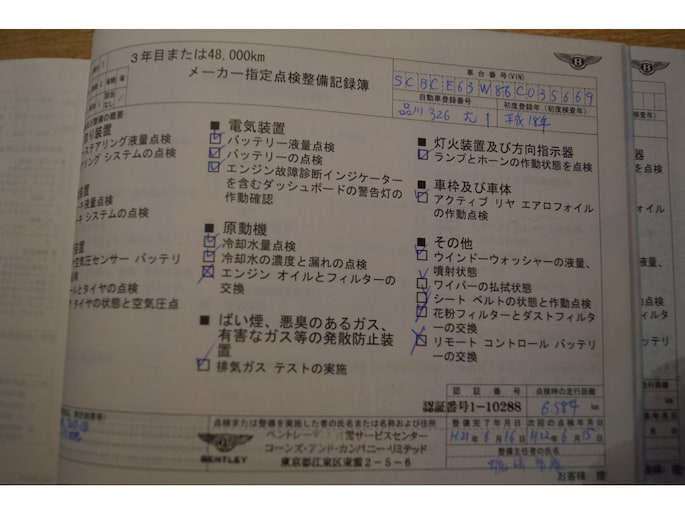 3年目または48,000km
メーカー指定点検整備記録簿
車台番号(VIN)
SCBCE63W86C035669
自動車登録番号 初度登録年(初度検査年)
品川 326 平成18年
の概要
ステアリング液量点検
システムの点検
キ液量点検
キ システムの点検
空気圧センサー バッテリ
ールとタイヤの点検
タイヤの状態と空気圧点
■ 電気装置
バッテリー液量点検
バッテリーの点検
エンジン故障診断インジケーター
を含むダッシュボードの警告灯の
作動確認
■ 原動機
冷却水量点検
冷却水の濃度と漏れの点検
エンジン オイルとフィルターの
交換
■ ばい煙、悪臭のあるガス、
有害なガス等の発散防止装
置
排気ガス テストの実施
■ 灯火装置及び方向指示器
ランプとホーンの作動状態を点検
■ 車枠及び車体
アクティブ リヤ エアロフォイル
の作動点検
■ その他
ウインドーウォッシャーの液量、
噴射状態
ワイパーの払拭状態
シート ベルトの状態と作動点検
花粉フィルターとダストフィルタ
ーの交換
リモート コントロール バッテリ
ーの交換
認証番号 点検時の走行距離
認証番号1-10288 6584 km
点検または整備を実施した者の氏名または名称および住所
整備完了年月日 次回の点検年月日
H21年6月16日 H22年6月15日
BENTLEY
サービスセンター
コーンズ・アンド・カンパニー・リミテッド
東京都江東区東雲2-5-6
整備主任者の氏名
お客様 控